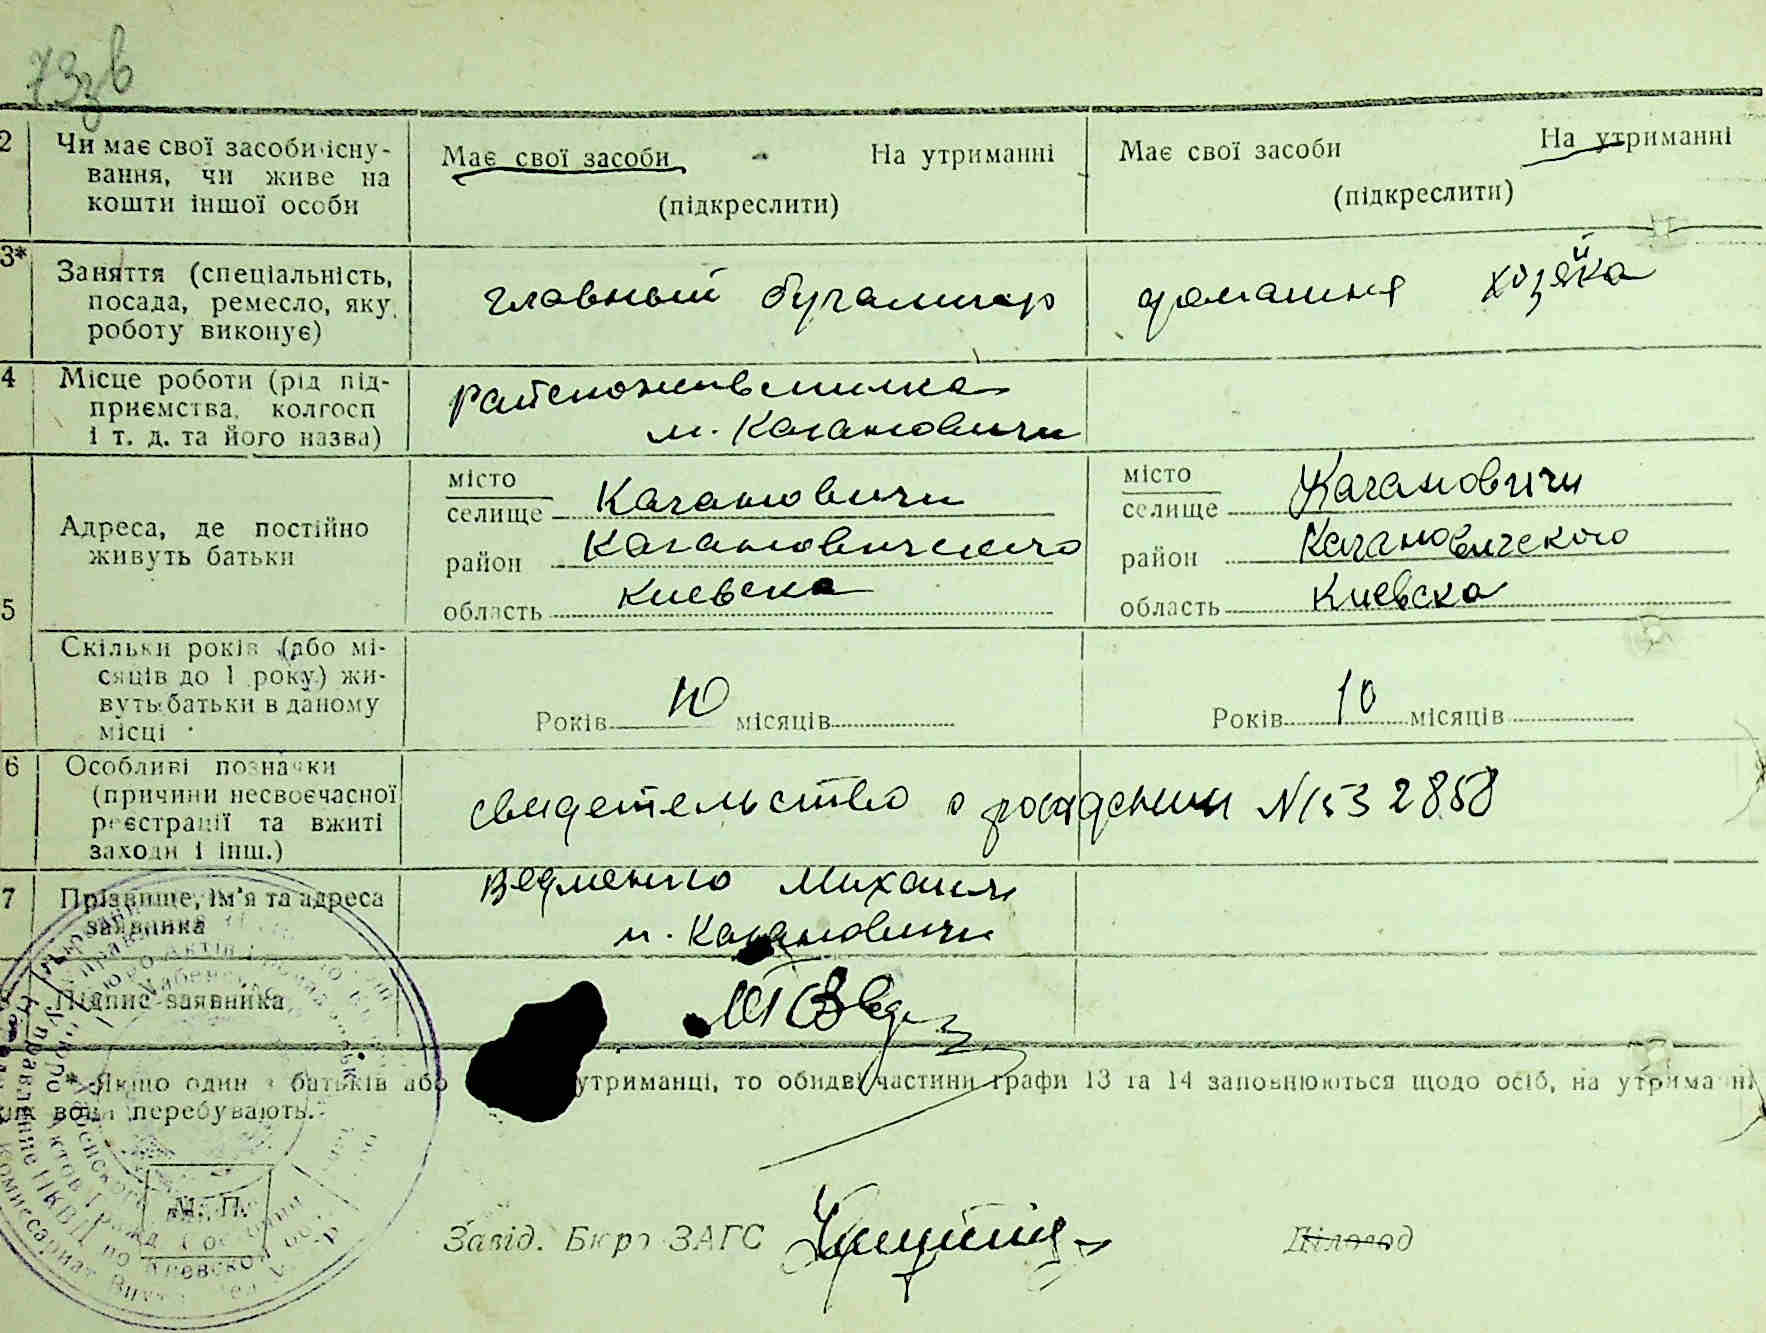 73зв
2 Чи має свої засоби існу-
вання, чи живе на
кошти іншої особи
Має свої засоби На утриманні
(підкреслити)
Має свої засоби На утриманні
(підкреслити)
3* Заняття (спеціальність,
посада, ремесло, яку
роботу виконує)
главный бугалтер
домашня хозяйка
4 Місце роботи (рід під-
приємства, колгосп
і т. д. та його назва)
м. Кагановичи
5 Адреса, де постійно
живуть батьки
місто
селище Кагановичи
район Кагановичского
область Киевска
місто
селище Кагановичи
район Кагановичского
область Киевска
Скільки років (або мі-
сяців до 1 року) жи-
вуть батьки в даному
місці
Років 10 місяців
Років 10 місяців
6 Особливі позначки
(причини несвоєчасної
реєстрації та вжиті
заходи і інш.)
свидетельство о рождении N 153 2858
7 Прізвище, ім'я та адреса
заявника
Ведменко Михаил
м. Кагановичи
Підпис заявника
* Якщо один з батьків або утриманці, то обидві частини графи 13 та 14 заповнюються щодо осіб, на утриманні
яких вони перебувають.
М. П.
Завід. Бюро ЗАГС
Діловод